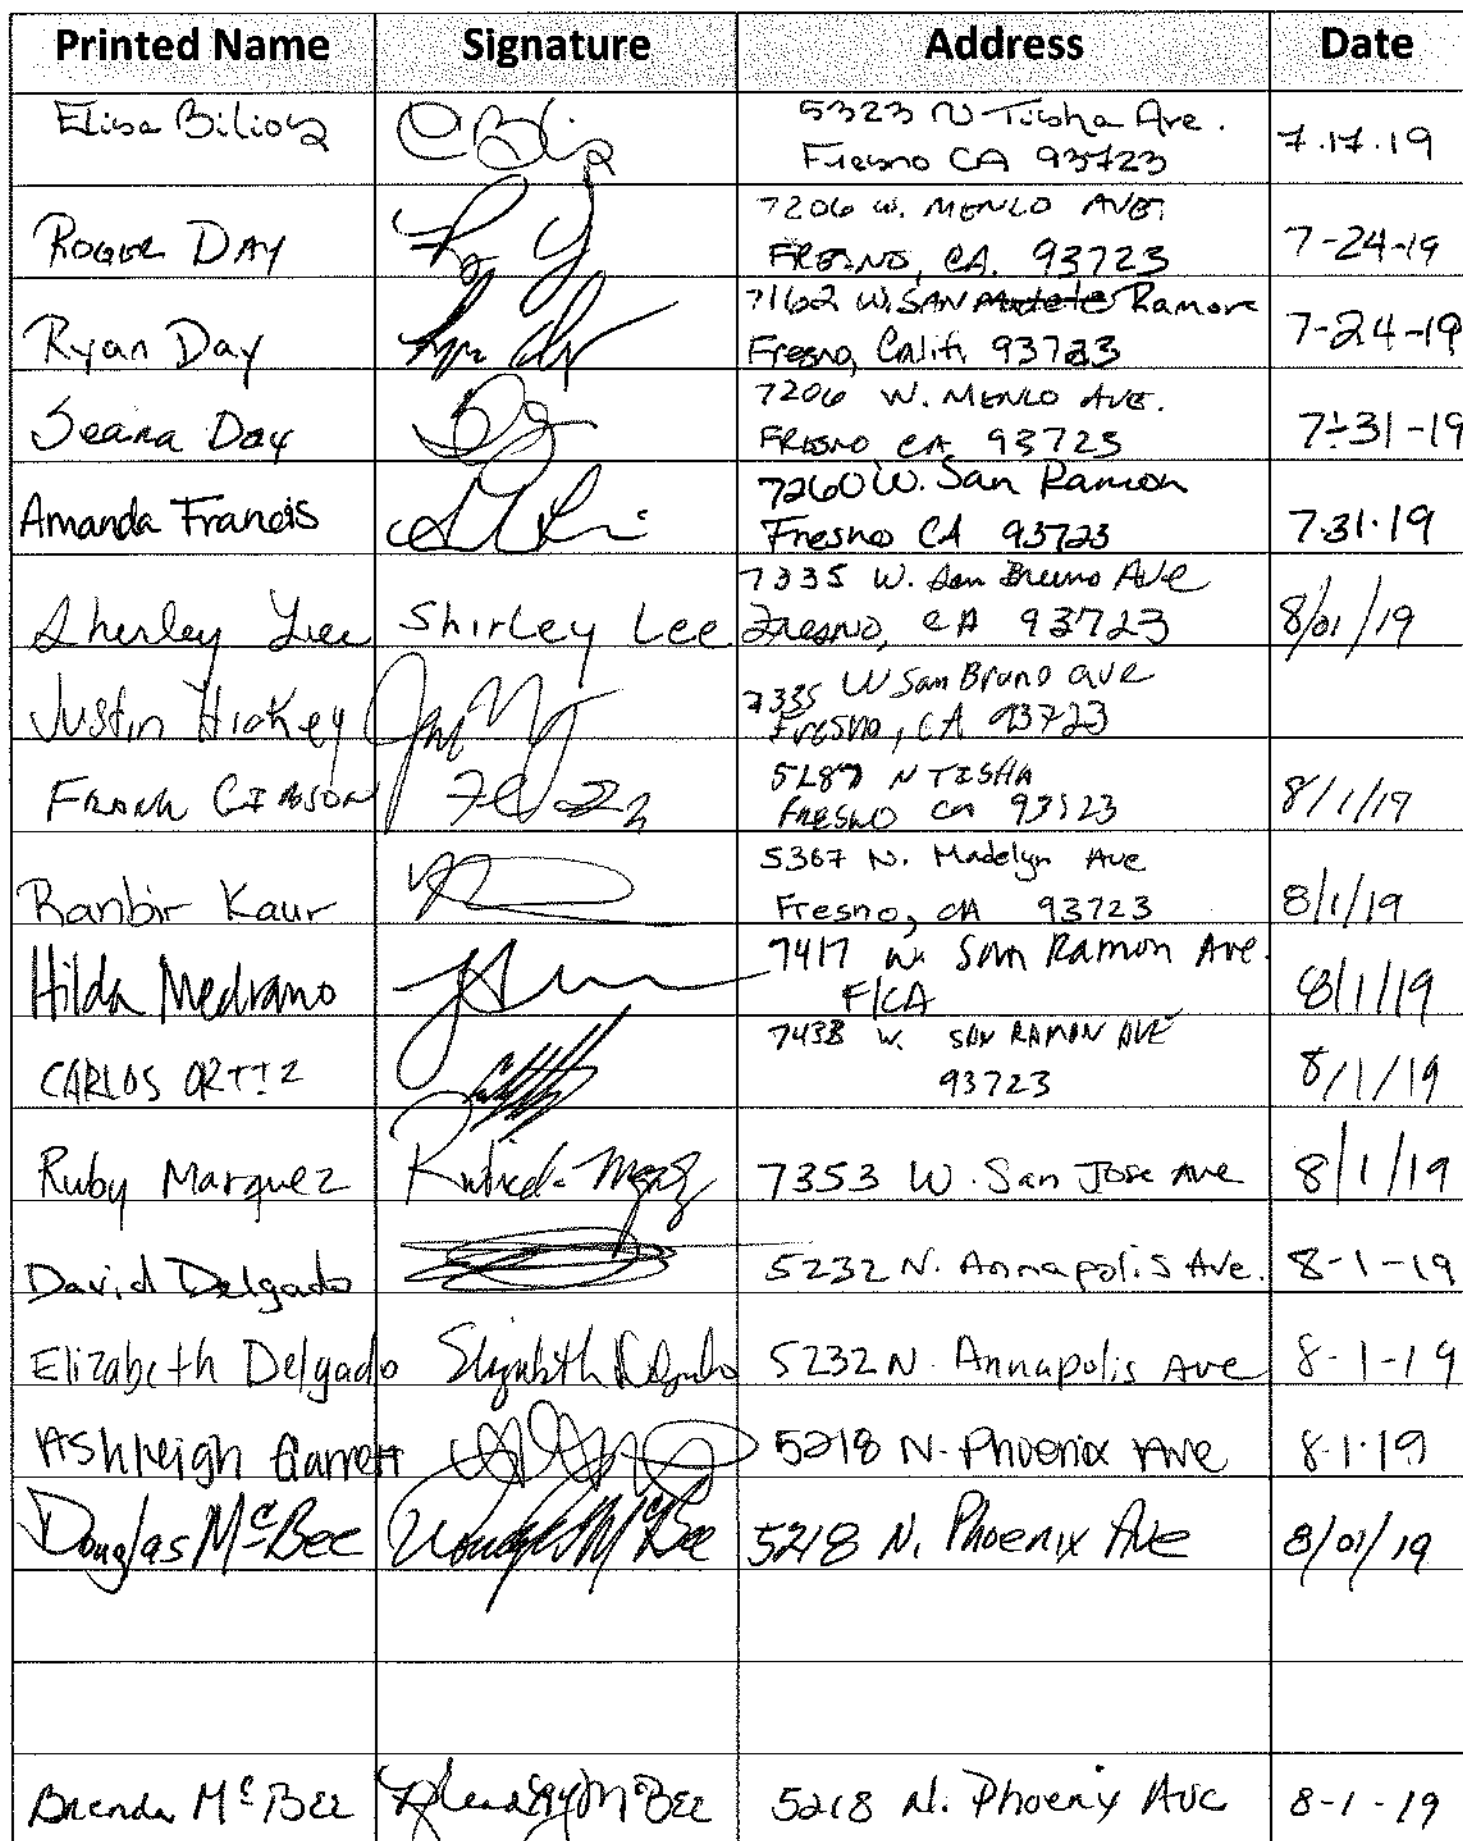 Printed Name Signature Address Date
Elisa 5323 N Tisha Ave. 7.17.19
Fresno CA 93723
Roger Day 7206 W. MENLO AVE, 7-24-19
FRESNO, CA. 93723
Ryan Day 7162 W. SAN Ramon 7-24-19
Fresno, Calif. 93723
Seana Day 7206 W. MENLO AVE. 7-31-19
FRESNO CA 93723
Amanda Francis 7260 W. San Ramon 7.31.19
Fresno CA 93723
Sherley Lee Shirley Lee 7335 W. San Bruno Ave 8/01/19
Fresno, CA 93723
Justin Hickey 7335 W San Bruno ave
Fresno, CA 93723
FRANK GIBSON 5287 N TISHA 8/1/19
FRESNO CA 93723
Ranbir Kaur 5367 N. Madelyn Ave 8/1/19
Fresno, CA 93723
Hilda Medrano 7417 W. San Ramon Ave. 8/1/19
F/CA
CARLOS ORTIZ 7438 W. SAN RAMON AVE 8/1/19
93723
Ruby Marquez 7353 W. San Jose Ave 8/1/19
David Delgado 5232 N. Annapolis Ave. 8-1-19
Elizabeth Delgado Elizabeth Delgado 5232 N. Annapolis Ave 8-1-19
Ashleigh Garrett 5218 N. Phoenix Ave 8.1.19
Douglas McBee Douglas McBee 5218 N. Phoenix Ave 8/01/19
Brenda McBee McBee 5218 N. Phoenix Ave 8-1-19